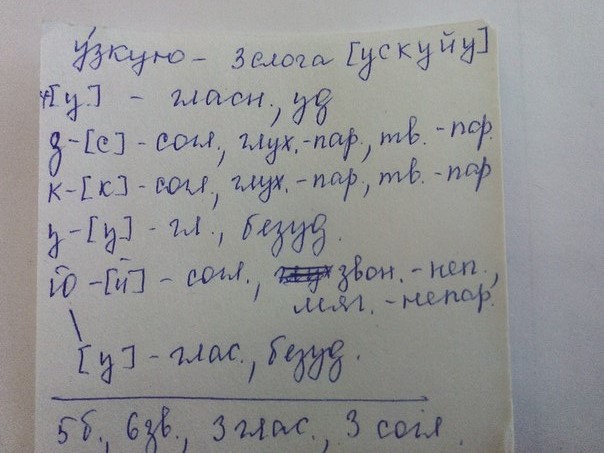 у́зкую - 3 слога [ускуйу]
у[у] - гласн., уд
з-[с] - согл., глух.-пар., тв.-пар.
к-[к] - согл., глух.-пар., тв.-пар
у-[у] - гл., безуд.
ю-[й] - согл., звон.-неп.,
мяг.-непар.
[у] - глас., безуд.
5б., 6зв., 3 глас., 3 согл.